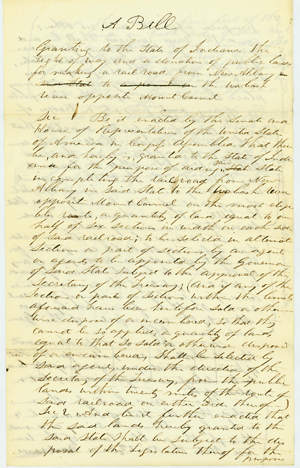 A Bill
Granting to the State of Indiana the
right of way and a donation of public land
for making a rail road from New Albany in
said State to a point on the Wabash
River opposite Mount Carmel
Sec Be it enacted by the Senate and
House of Representatives of the United States
of America in Congress Assembled That there
be, and hereby is, granted to the State of Indi
ana for the purpose of aiding said State
in completing the rail road from New
Albany in said State to the Wabash River
opposite Mount Carmel on the most eligi
ble route, a quantity of land equal to one
half of six sections in width on each side
of said rail road; to be selected in alternate
Sections or parts of sections by an agent
or agents to be appointed by the Governor
of said State subject to the approval of the
Secretary of the Treasury; (and if any of the
Section or part of Sections within the limits
aforesaid have been heretofore sold or other
wise disposed of or encumbered, so that they
cannot be so applied, a quantity of land
equal to that so sold or otherwise disposed
of or encumbered, shall be selected by
said agent, under the direction of the
Secretary of the Treasury, from the public
lands within twenty miles of the route of
said rail road on either side thereof
Sec 2 And be it further enacted that
the said lands hereby granted to the
said State shall be subject to the dis
posal of the Legislature thereof for the